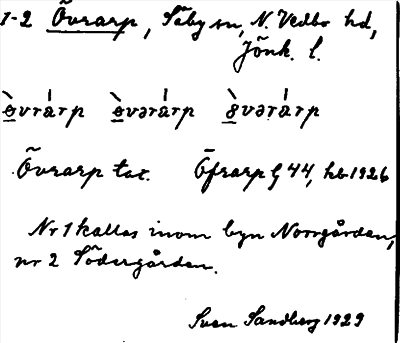 1-2 Övrarp, Säby sn, N. Vedbo hd,
Jönk. l.
òvrárp òvərárp 8̀vərárp
Övrarp tax. Öfrarp G 44, hb 1926
Nr 1 kallas inom byn Norrgården,
nr 2 Södergården.
Sven Sandberg 1929